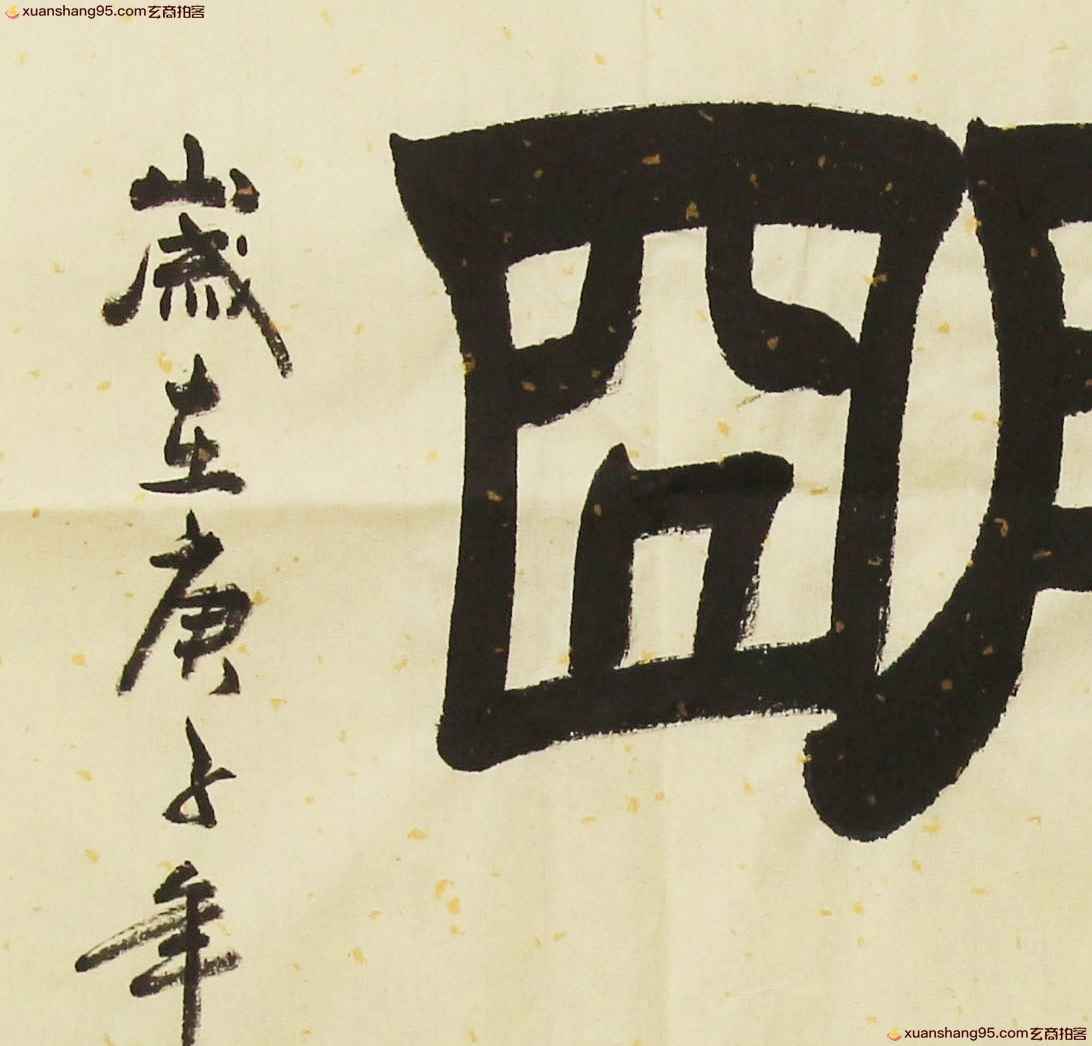 xuanshang95.com玄商拍客
朙
歲在庚子年
xuanshang95.com玄商拍客